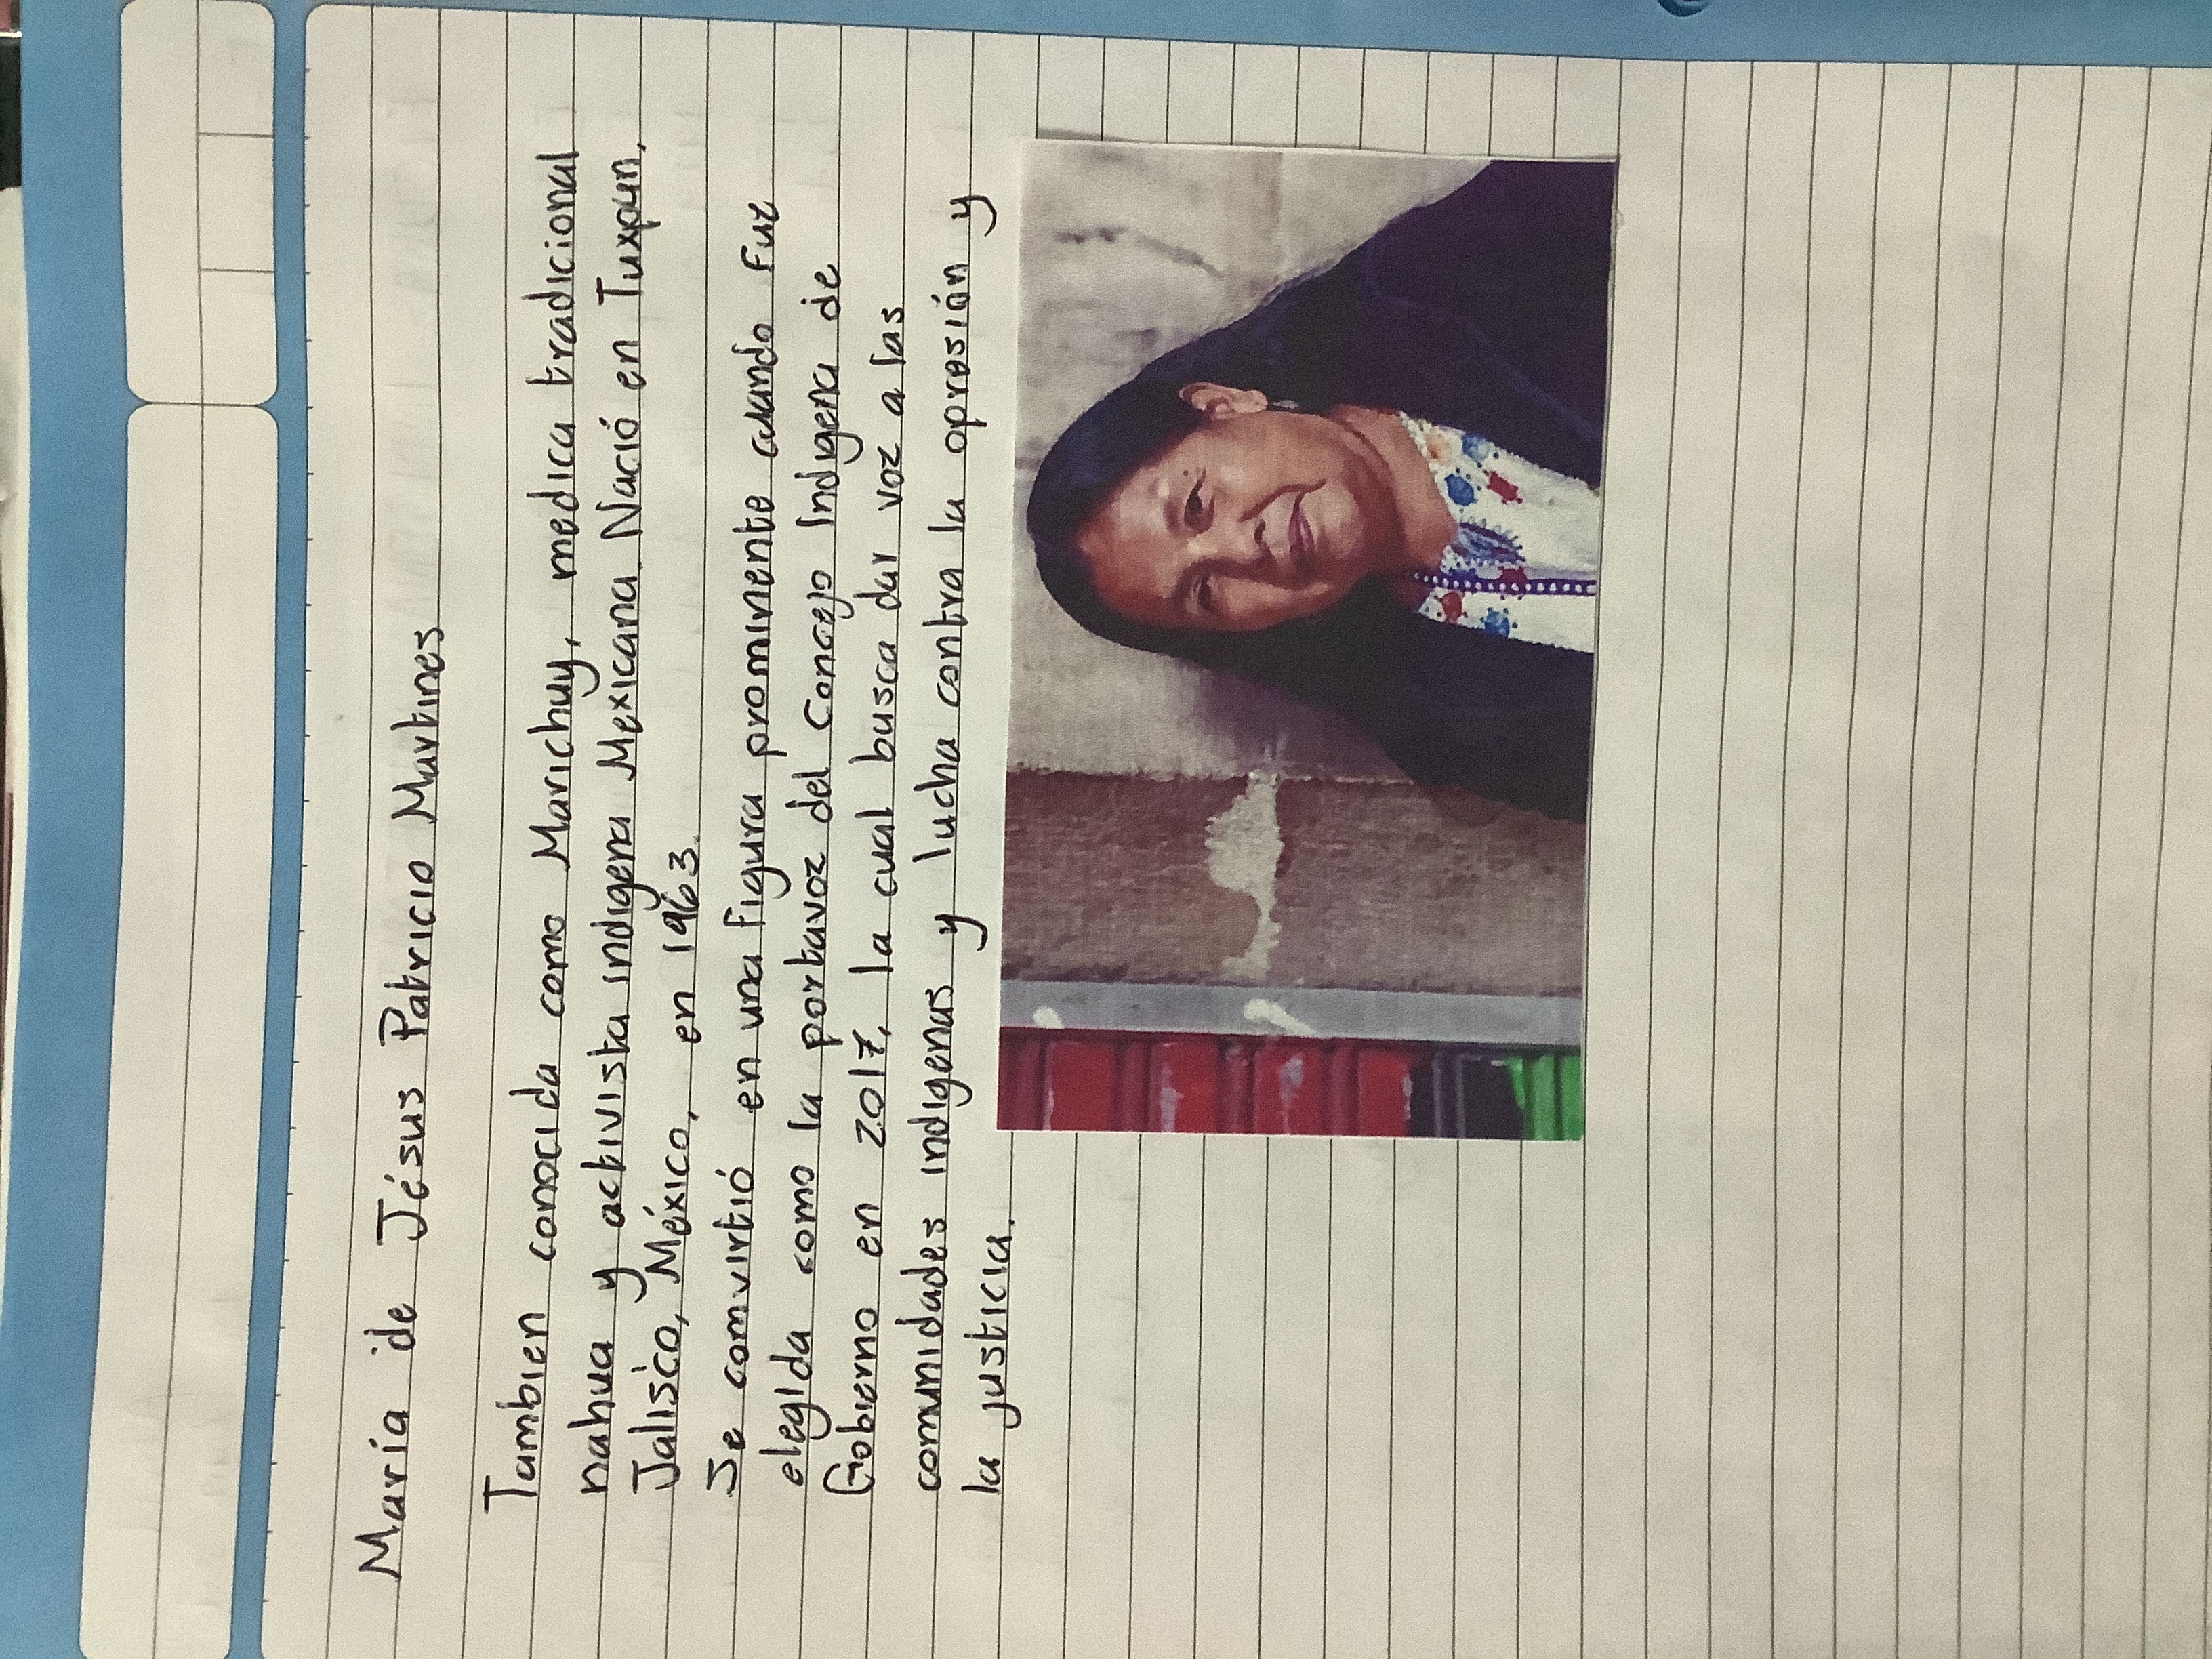 María de Jésus Patricio Martines
Tambien conocida como Marichuy, medica tradicional
nahua y activista indigena Mexicana. Nació en Tuxpan,
Jalisco, México, en 1963.
Se comvirtió en una figura prominente cuando fue
elegida como la portavoz del Concejo Indigena de
Gobierno en 2017, la cual busca dar voz a las
comunidades indigenas y lucha contra la opresión y
la justicia.